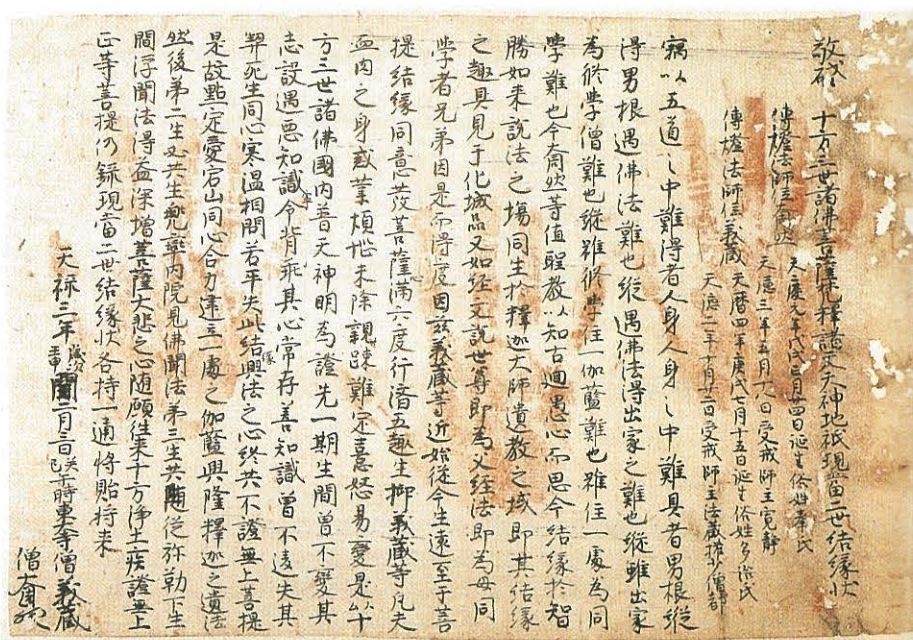 敬啓 十方三世諸佛菩薩梵釋諸天天神地祇現當二世結緣状
傳燈法師位奝然 天慶元年戊戌正月廿四日誕生俗姓秦氏
天德三年五月十八日受戒師主寬靜
傳燈法師位義藏 天暦四年庚戌七月十五日誕生俗姓多治氏
天德二年十月廿二日受戒師主法藏權少僧都
竊以五道〻中難得者人身人身〻中難具者男根縱
得男根遇佛法難也縱遇佛法得出家之難也縱雖出家
為修學僧難也縱雖修學住一伽藍難也雖住一處為同
學難也今奝然等值聖教以知古廻愚心而思今結緣於智
勝如来說法之場同生於釋迦大師遺教之域即其結緣
之趣具見于化城品又如經文說世尊即為父經法即為母同
學者兄弟因是而得度因茲義藏等近始從今生遠至于菩
提結緣同意共發菩薩心滿六度行濟五趣生抑義藏等凡夫
血肉之身或業煩惱未除親踈難定喜怒易變是以十
方三世諸佛國内普天神明為證先一期生間曽不變其
志設遇惡知識令背乖其心常存善知識曽不違失其
契死生同心寒温相問若平失此結緣興法之心終共不證無上菩提
是故點定愛宕山同心合力建立一處之伽藍興隆釋迦之遺法
然後第二生必共生兜率内院見佛聞法第三生共隨從弥勒下生
閻浮聞法得益深增菩薩大悲之心随願往来十方浄土疾證無上
正等菩提仍録現當二世結緣状各持一通将貽将来
天禄三年 閏二月三日 時東大寺僧義藏
僧奝然